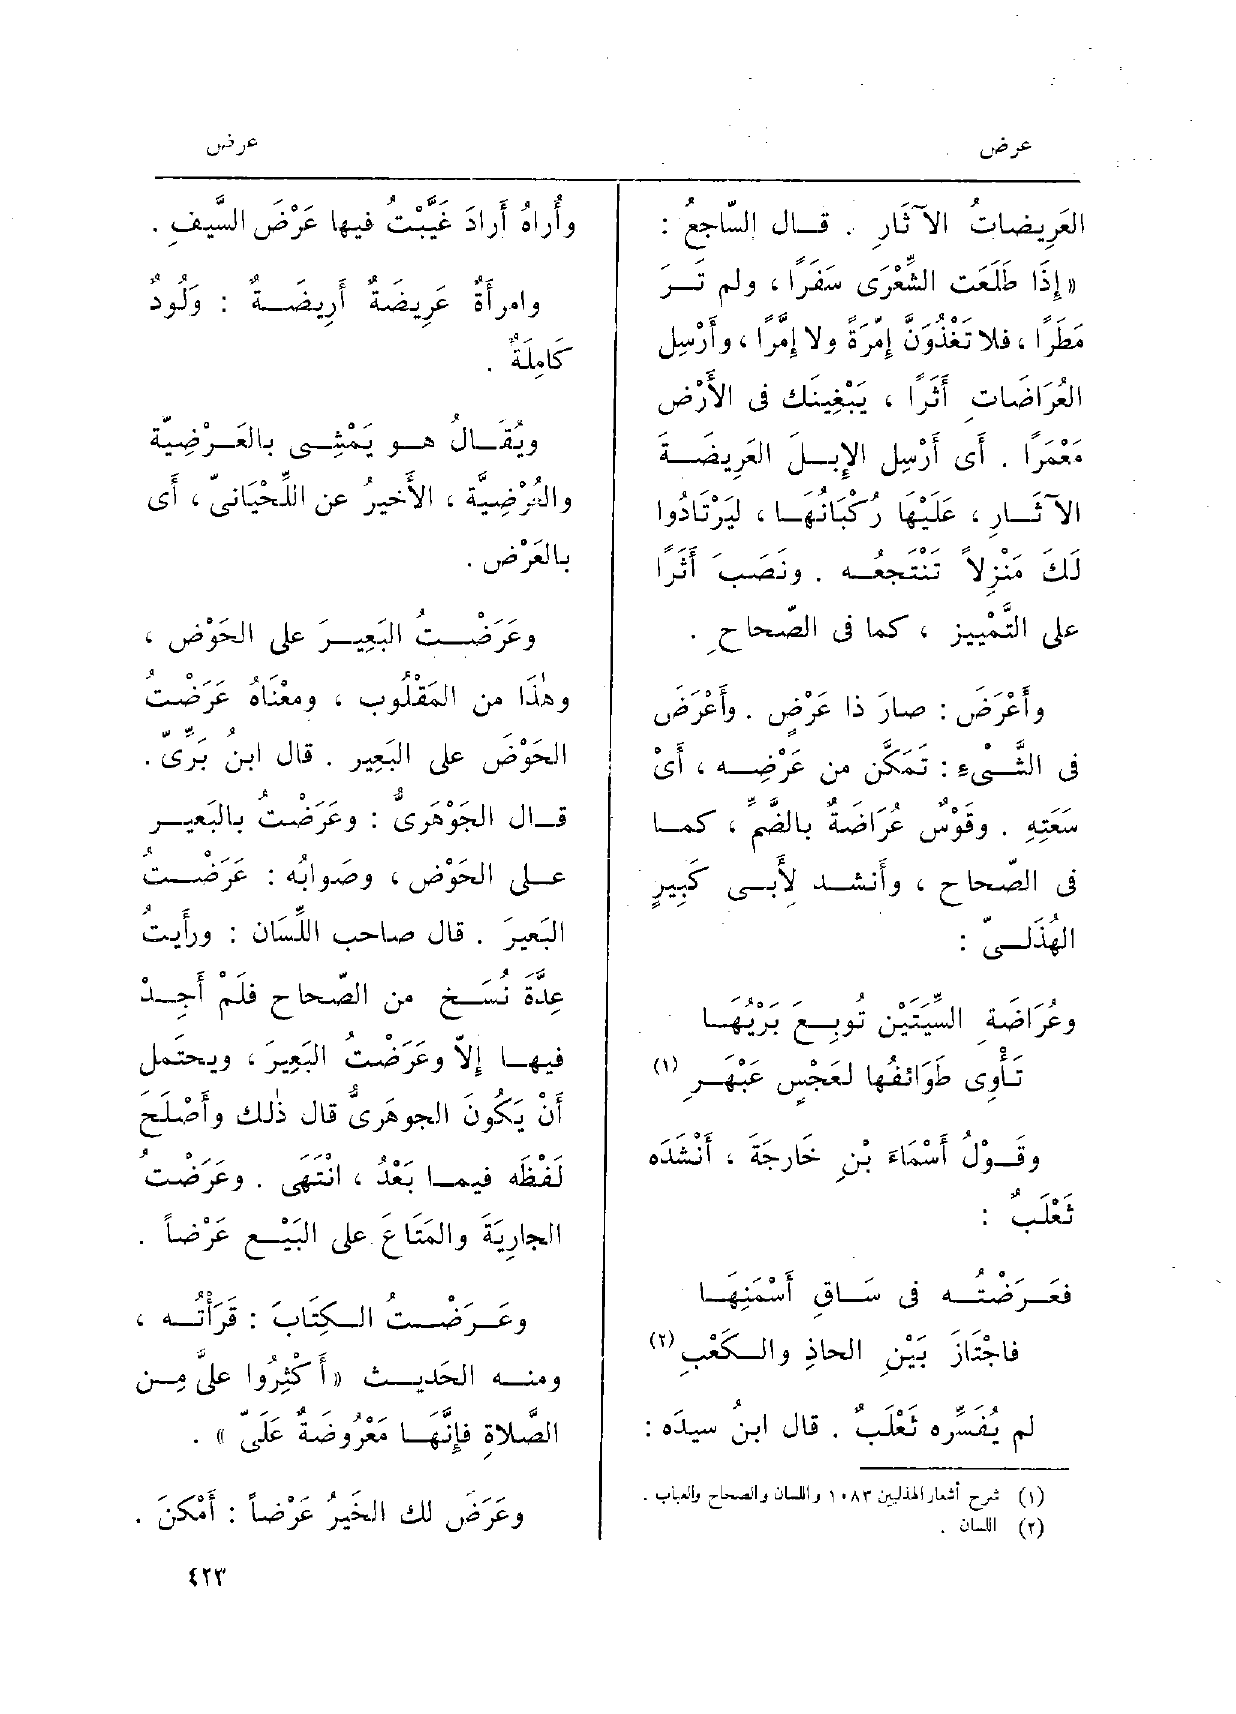 عرض
عرض
العَرِيضاتُ الآثَارِ . قـال السّاجعُ :
« إِذَا طَلَعَت الشِّعْرَى سَفَرًا ، ولم تَـرَ
مَطَرًا ، فلا تَغْذُوَنَّ إِمَّرَةً ولا إِمَّرًا ، وأَرْسِل
العُرَاضَاتِ أَثَرًا ، يَبْغِينَك فى الأَرْض
مَعْمَرًا . أَى أَرْسِل الإِبِـلَ العَرِيضَـةَ
الآثَـارِ ، عَلَيْهَا رُكْبَانُهَـا ، ليَرْتَادُوا
لَكَ مَنْزِلاً تَنْتَجعُـه . ونَصَبَ أَثَرًا
على التَّمْيِيز ، كما فى الصّحاحِ .
وأَعْرَضَ : صارَ ذا عَرْضٍ . وأَعْرَضَ
فى الشَّـىْءِ : تَمَكَّن من عَرْضِـه ، أَىْ
سَعَتِهِ . وقَوْسٌ عُرَاضَةٌ بالضَّمّ ، كمـا
فى الصّحاح ، وأَنشـد لأَبـى كَبِيرٍ
الهُذَلـىّ :
وعُرَاضَةِ السِّيَتَيْن تُوبِـعَ بَرْيُهَـا
تَأْوِى طَوَائفُها لعَجْسٍ عَبْهَـرِ (١)
وقَـوْلُ أَسْمَاءَ بْنِ خَارجَةَ ، أَنْشَدَه
ثَعْلَبٌ :
فعَـرَضْتُـه فى سَـاقِ أَسْمَنِهَـا
فاجْتَازَ بَيْنَ الحاذِ والـكَعْبِ (٢)
لم يُفَسِّره ثَعْلَبٌ . قال ابنُ سيدَه :
(١) شرح أشعار الهذليين ١٠٨٣ واللسان والصحاح والعباب .
(٢) اللسان .
وأُراهُ أَرادَ غَيَّبْتُ فيها عَرْضَ السَّيفِ .
وامرأَةٌ عَرِيضَةٌ أَرِيضَـةٌ : وَلُودٌ
كَامِلَةٌ .
ويُقَـالُ هـو يَمْشِـى بالعَـرْضِيَّة
والعُرْضِيَّة ، الأَخيرُ عن اللِّحْيَانىّ ، أَى
بالعَرْض .
وعَرَضْـتُ البَعِيـرَ على الحَوْض ،
وهٰذَا من المَقْلُوب ، ومعْنَاهُ عَرَضْـتُ
الحَوْضَ على البَعِير . قال ابنُ بَرِّىّ .
قـال الجَوْهَرِىُّ : وعَرَضْت بالبَعيـر
علـى الحَوْض ، وصَوابُه : عَرَضْـتُ
البَعيرَ . قال صاحب اللِّسَان : ورأَيتُ
عِدَّةَ نُسَـخٍ من الصّحاح فلَمْ أَجِـدْ
فيهـا إِلاّ وعَرَضْتُ البَعِيرَ ، ويحتمل
أَنْ يَكُونَ الجوهَرِىُّ قال ذٰلك وأَصْلَحَ
لَفْظَه فيمـا بَعْدُ ، انْتَهَى . وعَرَضْتُ
الجارِيَةَ والمَتَاعَ على البَيْـعِ عَرْضاً .
وعَـرَضْـتُ الـكِتَابَ : قَرَأْتُـه ،
ومنـه الحَديـث « أَكْثِرُوا علىَّ مِـن
الصَّلاةِ فإِنَّهَـا مَعْرُوضَةٌ عَلَىَّ » .
وعَرَضَ لك الخَيرُ عَرْضاً : أَمْكَنَ .
٤٢٣